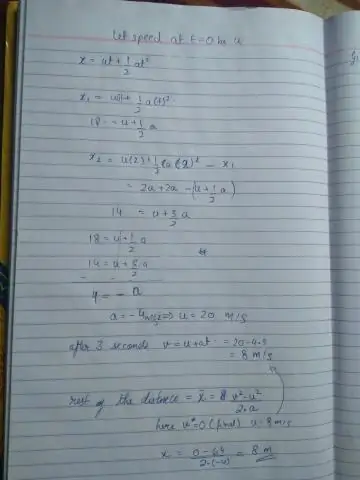 Let speed at t=0 be u
x = ut + 1/2 at²
x₁ = u(1) + 1/2 a(1)²
18 = u + 1/2 a
x₂ = u(2) + 1/2 (a)(2)² - x₁
= 2u + 2a - (u + 1/2 a)
14 = u + 3/2 a
18 = u + 1/2 a
14 = u + 3/2 a
- - -
4 = - a
a = -4 m/s² ⇒ u = 20 m/s
after 3 seconds v = u + at = 20 - 4·3
= 8 m/s
rest of the distance = x = 8 v² - u² / 2·a
here v = 0 (final) u = 8 m/s
x = 0 - 64 / 2·(-4) = 8 m